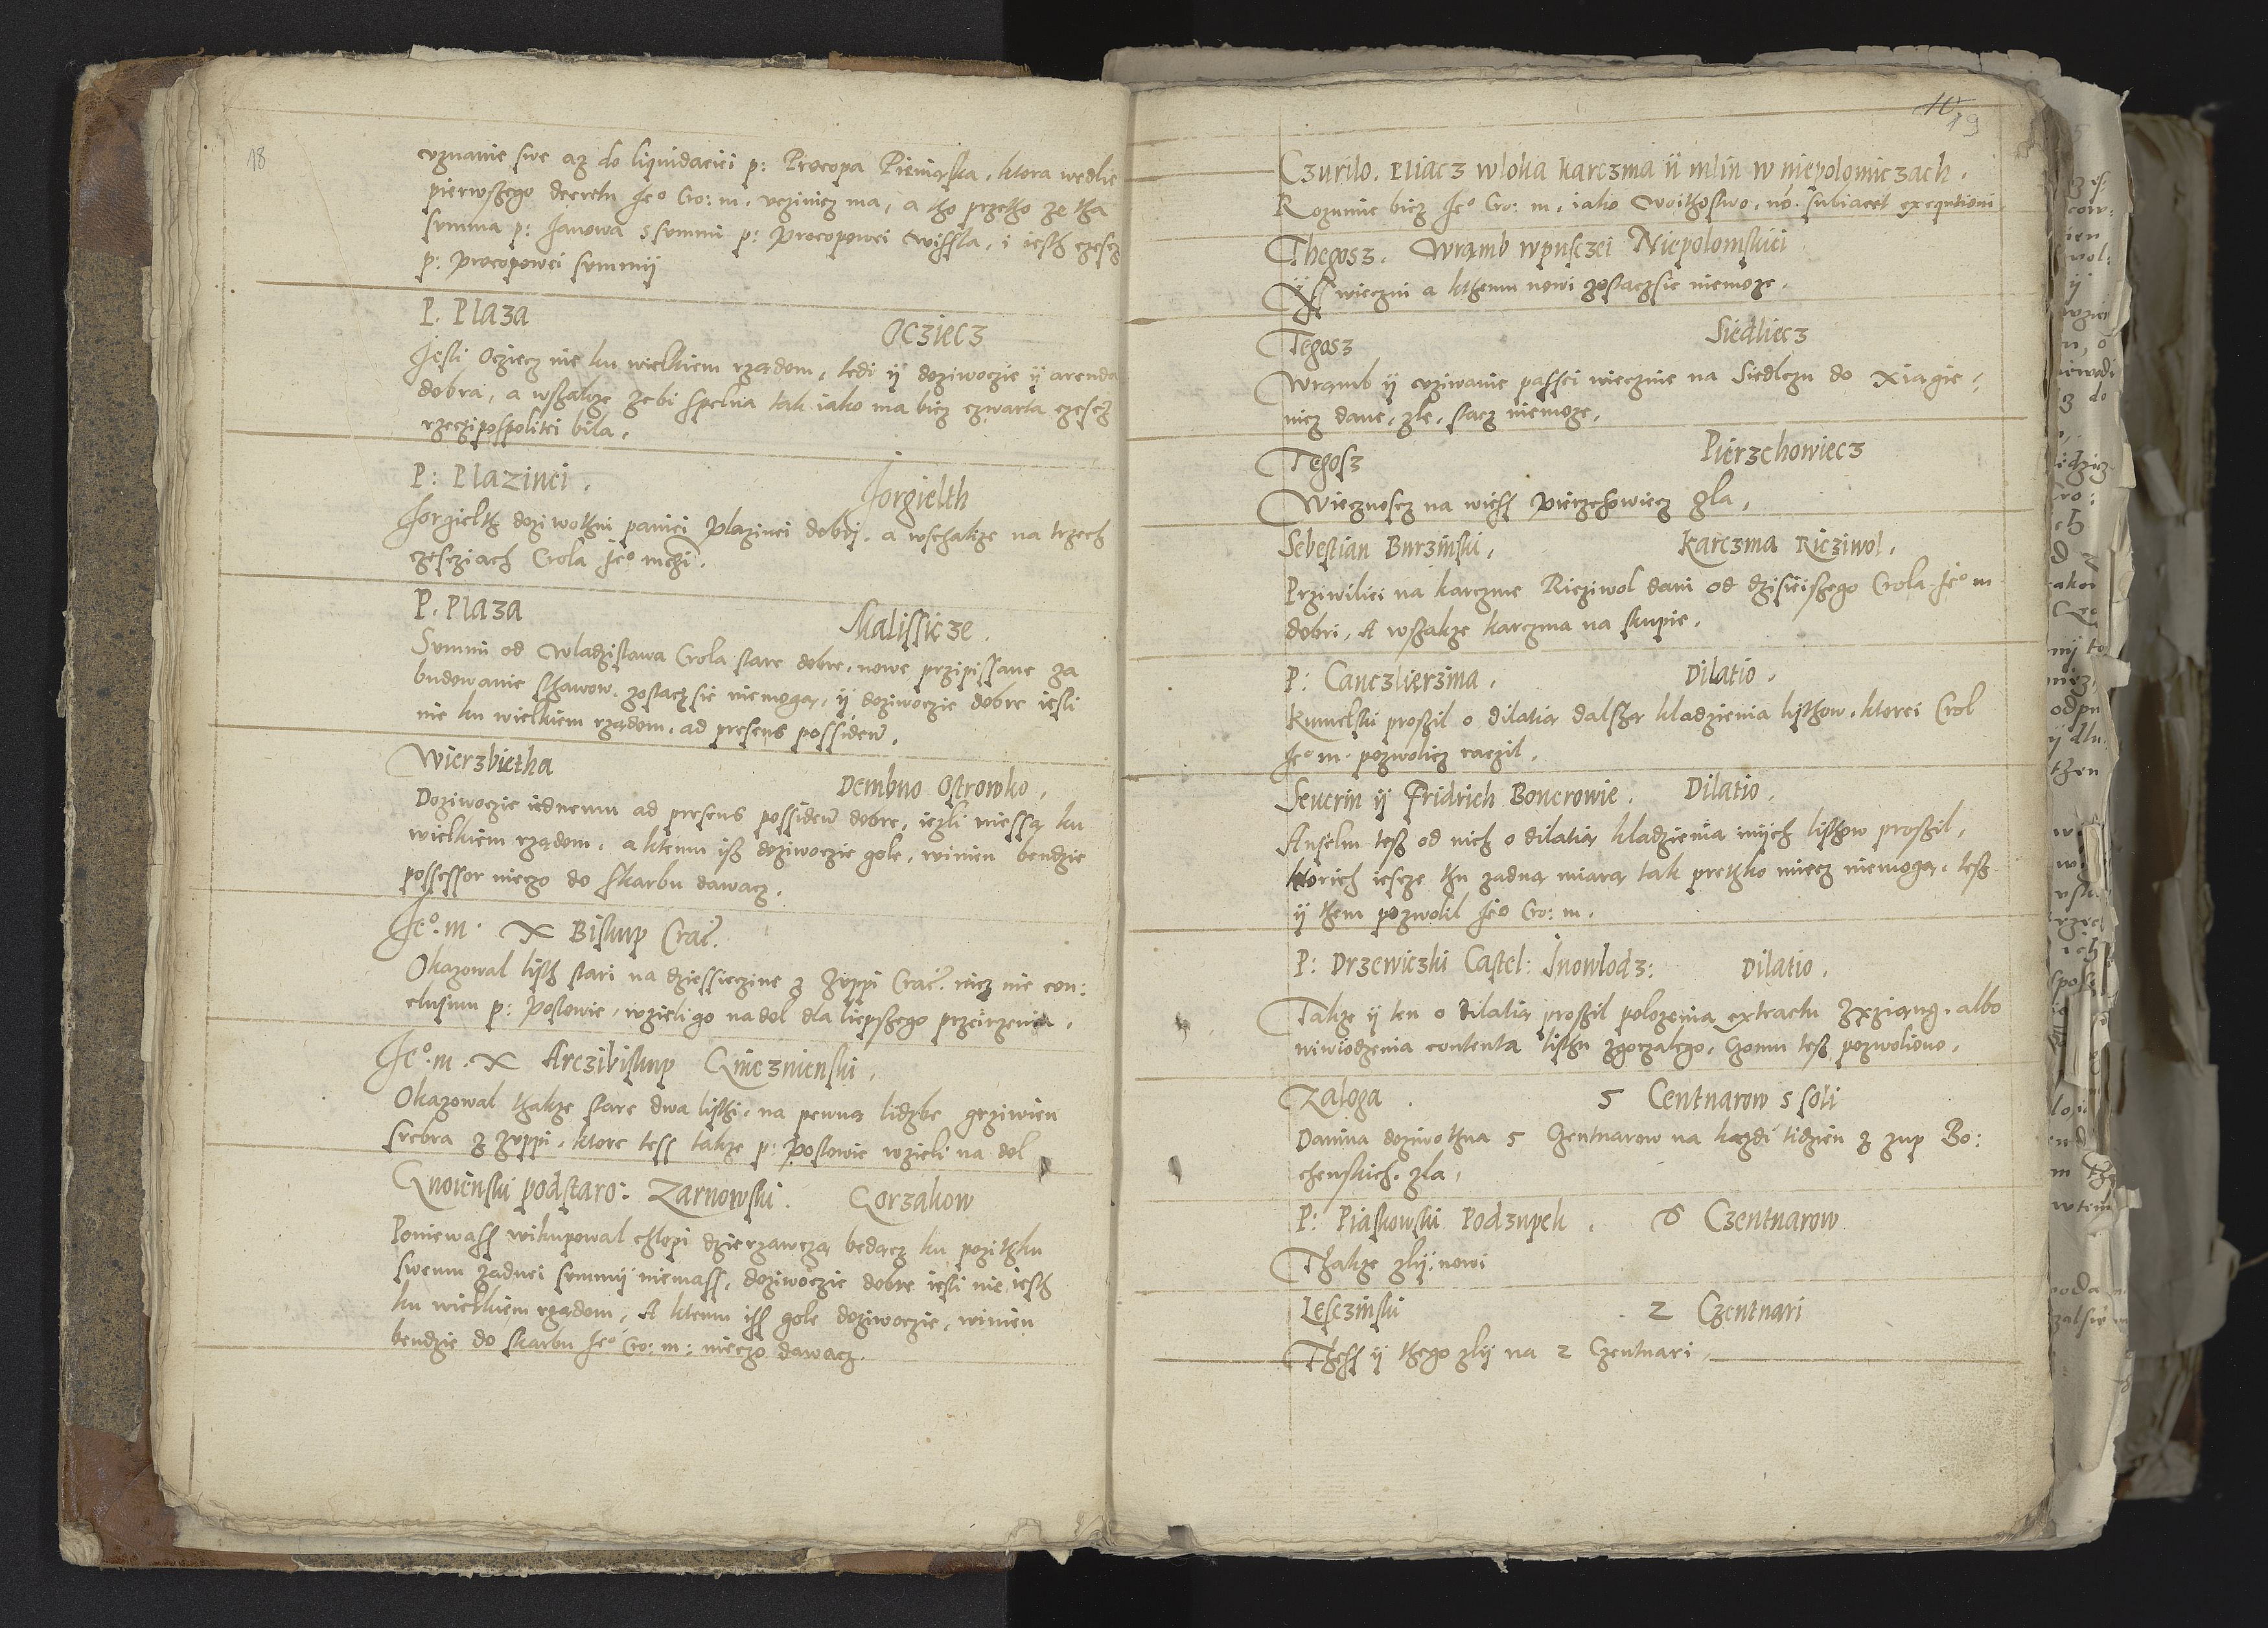 18
vznanie swe az do liquidaciei p: Procopa Pieniąska, ktora wedlie
pierwszego decretu Jeo Cro: m. vcziniez ma, a tho przetho ze tha
summa p: Janowa s summi p: Procopowei wissla, i iesth czescz
p: Procopowei summij
P. Plaza
Ocziecz
Jesli Ocziecz nie ku wielkiem rządom, tedi ij doziwoczie ij arenda
dobra, a wszakze zebi spelna tak iako ma bicz czwarta czescz
rzeczipospolitei bila.
P: Plazinei.
Jorgielth
Jorgielth doziwothni paniei Plazinei dobri, a wschakze na trzech
czescziach Crola Jeo mczi.
P. Plaza
Malissicze.
Summi od Wladzislawa Crola stare dobre, nowe przipissane za
budowanie sthawow, zostaczsie niemogą, ij doziwoczie dobre iesli
nie ku wielkiem rządom, ad presens possiden.
Wierzbietha
Dembno Ostrowko.
Doziwoczie iednemu ad presens possiden dobre, iezli niessą ku
wielkiem rządom, a ktemu isz doziwoczie gole, winien bendzie
possessor nieczo do skarbu dawacz.
Jeo. m. X Biskup Crac.
Okazowal listh stari na dziessieczine z zuppi Crac. nicz nie con:
clusum p: Poslowie, wzieli go na dol dla liepszego przeirzenia.
Jeo. m. X Arczibiskup Gnieznienski.
Okazowal thakze stare dwa listhi, na pewną lidzbe grziwien
srebra z zuppi, ktore tess takze p: Poslowie wzieli na dol
Gnoienski podstaro: Zarnowski. Gorzakow
Poniewass wikupowal chlopi dzierzawczą bedącz ku pozithku
swemu zadnei summij niemass, doziwoczie dobre iesli nie iesth
ku wielkiem rządom, A ktemu iss gole doziwoczie, winien
bendzie do skarbu Jeo Cro: m: nieczo dawacz.
19
Czurilo. Pliacz wloka karczma ij mlin w niepolomiczach.
Rozumie bicz Jeo Cro: m. iako woithostwo, no. subiacet exequtioni
Thegosz. Wramb wpusczei Niepolomskiei
Iss wieczni a kthemu nowi zostaczsie niemoze.
Tegosz
Siedliecz
Wramb ij vziwanie passei wiecznie na Siedlczu do Xiagie:
nicz dane, zle, stacz niemoze.
Tegosz
Pierzchowiecz
Wiecznoscz na wiess Pierzchowiecz zla.
Sebestian Burzinski.
Karczma Ricziwol.
Prziwiliei na karczme Ricziwol dani od dzisieiszego Crola Jeo m
dobri, A wszakze karczma na skupie.
P: Canczlierzima.
Dilatio.
Kumelski proszil o dilatią dalszą kladzienia listhow, ktorei Crol
Jeo m. pozwolicz raczil.
Seuerin ij Fridrich Bonerowie. Dilatio.
Anselm tesz od nich o dilatią kladzienia inijch listhow proszil,
ktorich iescze thu zadną miarą tak prethko miecz niemogą, tesz
ij them pozwolil Jeo Cro: m.
P: Drzewiczki Castel: Inowlodz:
Dilatio.
Takze ij ten o dilatią proszil polozenia extractu zxziąng, albo
wiwiodzenia contenta listhu zgorzalego, czomu tesz pozwoliono.
Zaloga.
5 Centnarow s soli
Danina doziwothna 5 Czentnarow na kazdi tidzien z zup Bo:
chenskich, zla.
P: Piaskowski Podzupek.
6 Czentnarow
Thakze zlij, nowi
Lesczinski
2 Czentnari
Thess ij thego zlij na 2 Czentnari.